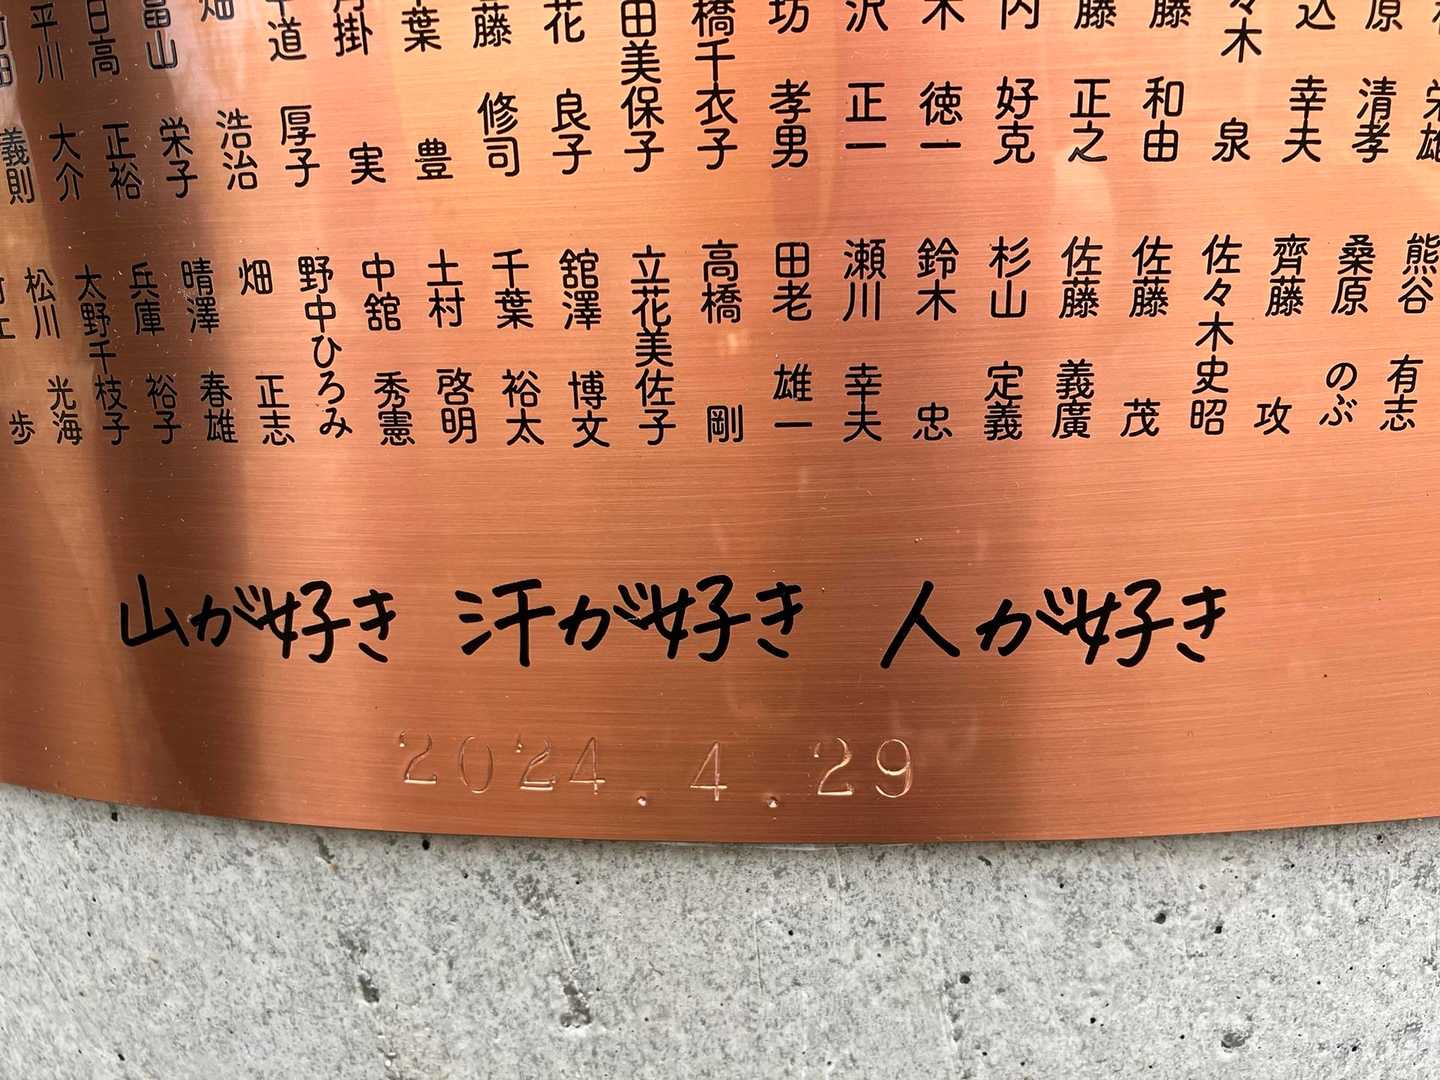 栄雄
原 清孝
込 幸夫
々木 泉
藤 和由
藤 正之
内 好克
木 徳一
沢 正一
坊 孝男
橋千衣子
田美保子
花 良子
藤 修司
葉 豊
掛 実
道 厚子
畑 浩治
富山 栄子
日高 正裕
平川 大介
田 義則
熊谷 有志
桑原 のぶ
齊藤 攻
佐々木史昭
佐藤 茂
佐藤 義廣
杉山 定義
鈴木 忠
瀬川 幸夫
田老 雄一
高橋 剛
立花美佐子
舘澤 博文
千葉 裕太
土村 啓明
中舘 秀憲
野中ひろみ
畑 正志
晴澤 春雄
兵庫 裕子
太野千枝子
松川 光海
歩
山が好き 汗が好き 人が好き
2024.4.29